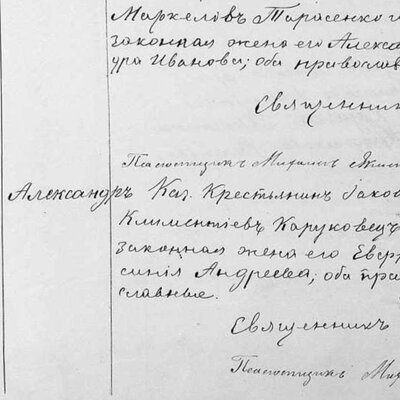 Маркеловъ Тарасенко и
законная жена его Алекса
ура Иванова; оба православ
Священник
Псаломщикъ Михаилъ
Александръ Каз. Крестьянин Іаков
Климентіевъ Каруковецъ
законная жена его Евфр
синія Андреева; оба пра
славные.
Священникъ
Псаломщикъ Мих